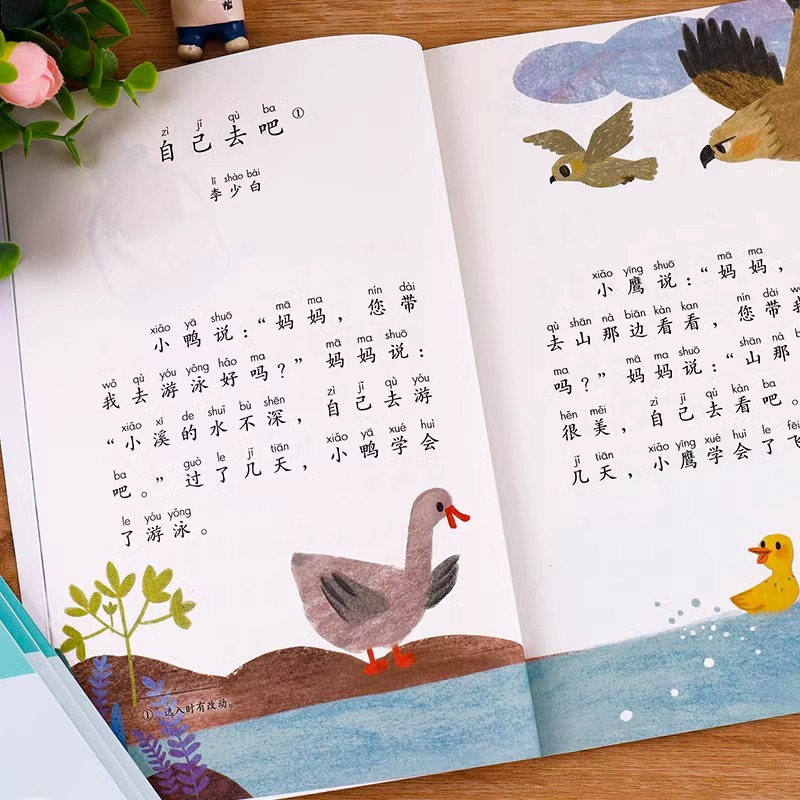 zì jǐ qù ba
自己去吧①
lǐ shào bái
李少白
xiǎo yā shuō mā ma nín dài
小鸭说：“妈妈，您带
wǒ qù yóu yǒng hǎo ma mā ma shuō
我去游泳好吗？” 妈妈说：
xiǎo xī de shuǐ bù shēn zì jǐ qù yóu
“小溪的水不深，自己去游
ba guò le jǐ tiān xiǎo yā xué huì
吧。” 过了几天，小鸭学会
le yóu yǒng
了游泳。
① 选入时有改动。
xiǎo yīng shuō mā ma
小鹰说：“妈妈，
qù shān nà biān kàn kan nín dài
去山那边看看，您带我
ma mā ma shuō shān nà
吗？” 妈妈说：“山那
hěn měi zì jǐ qù kàn ba
很美，自己去看吧。
jǐ tiān xiǎo yīng xué huì le fēi
几天，小鹰学会了飞